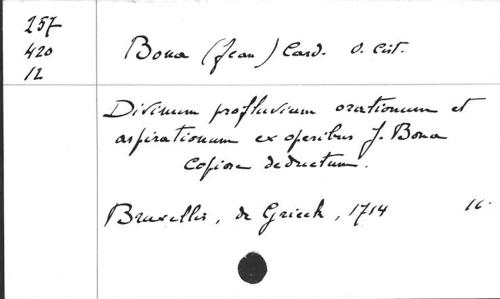 257
420
12
Bona (Jean) Card. O. Cist.
Divinum profluvium orationum et
aspirationum ex operibus J. Bona
Copiose deductum.
Bruxellis, de Grieck, 1714 16.